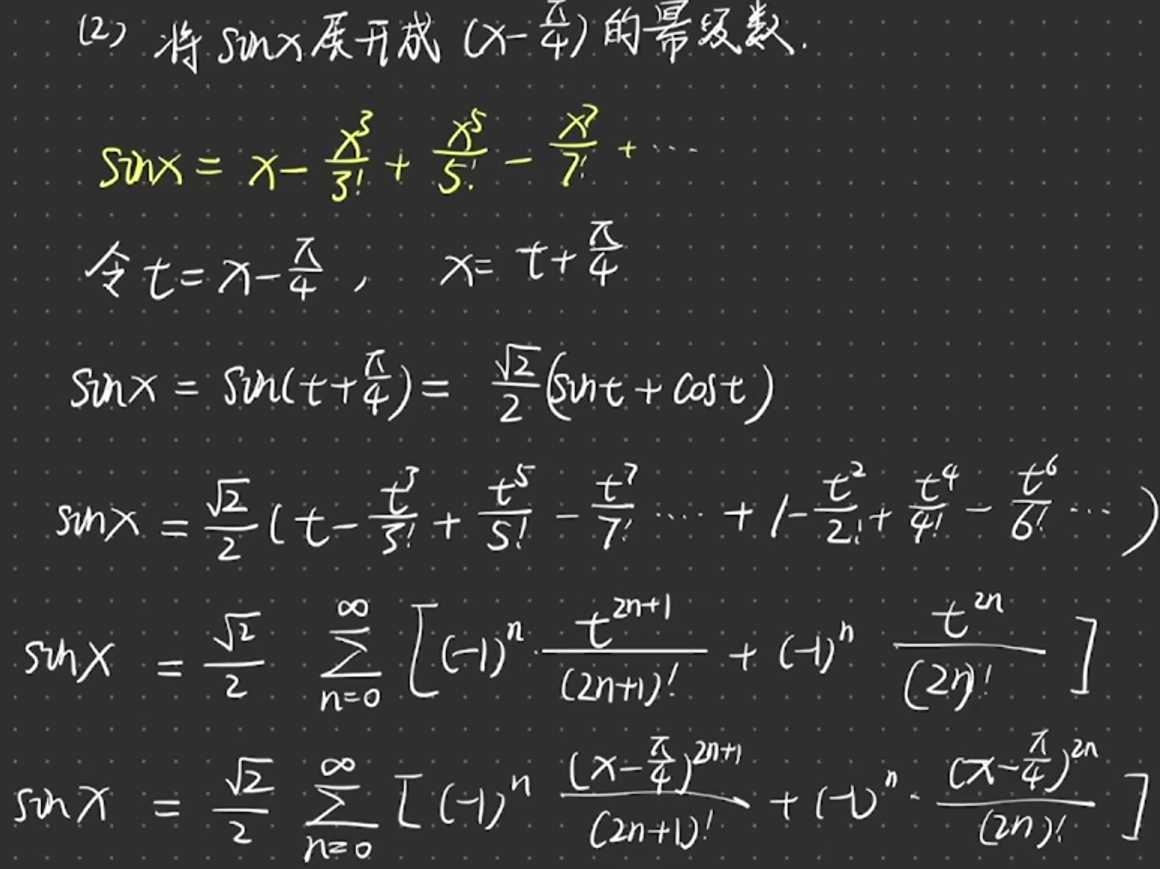 (2) 将 sinx 展开成 (x-π/4) 的幂级数.
sinx = x - x³/3! + x⁵/5! - x⁷/7! + ···
令 t = x - π/4 , x = t + π/4
sinx = sin(t + π/4) = √2/2 (sint + cost)
sinx = √2/2 ( t - t³/3! + t⁵/5! - t⁷/7! ···· + 1 - t²/2! + t⁴/4! - t⁶/6! ··· )
sinx = √2/2 ∑_{n=0}^{∞} [ (-1)ⁿ · t^{2n+1}/(2n+1)! + (-1)ⁿ t^{2n}/(2n)! ]
sinx = √2/2 ∑_{n=0}^{∞} [ (-1)ⁿ (x-π/4)^{2n+1}/(2n+1)! + (-1)ⁿ · (x-π/4)^{2n}/(2n)! ]